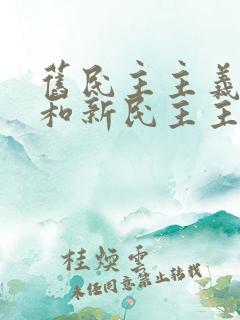 舊民主主義
和新民主主
桂煥雲
未经同意禁止转载